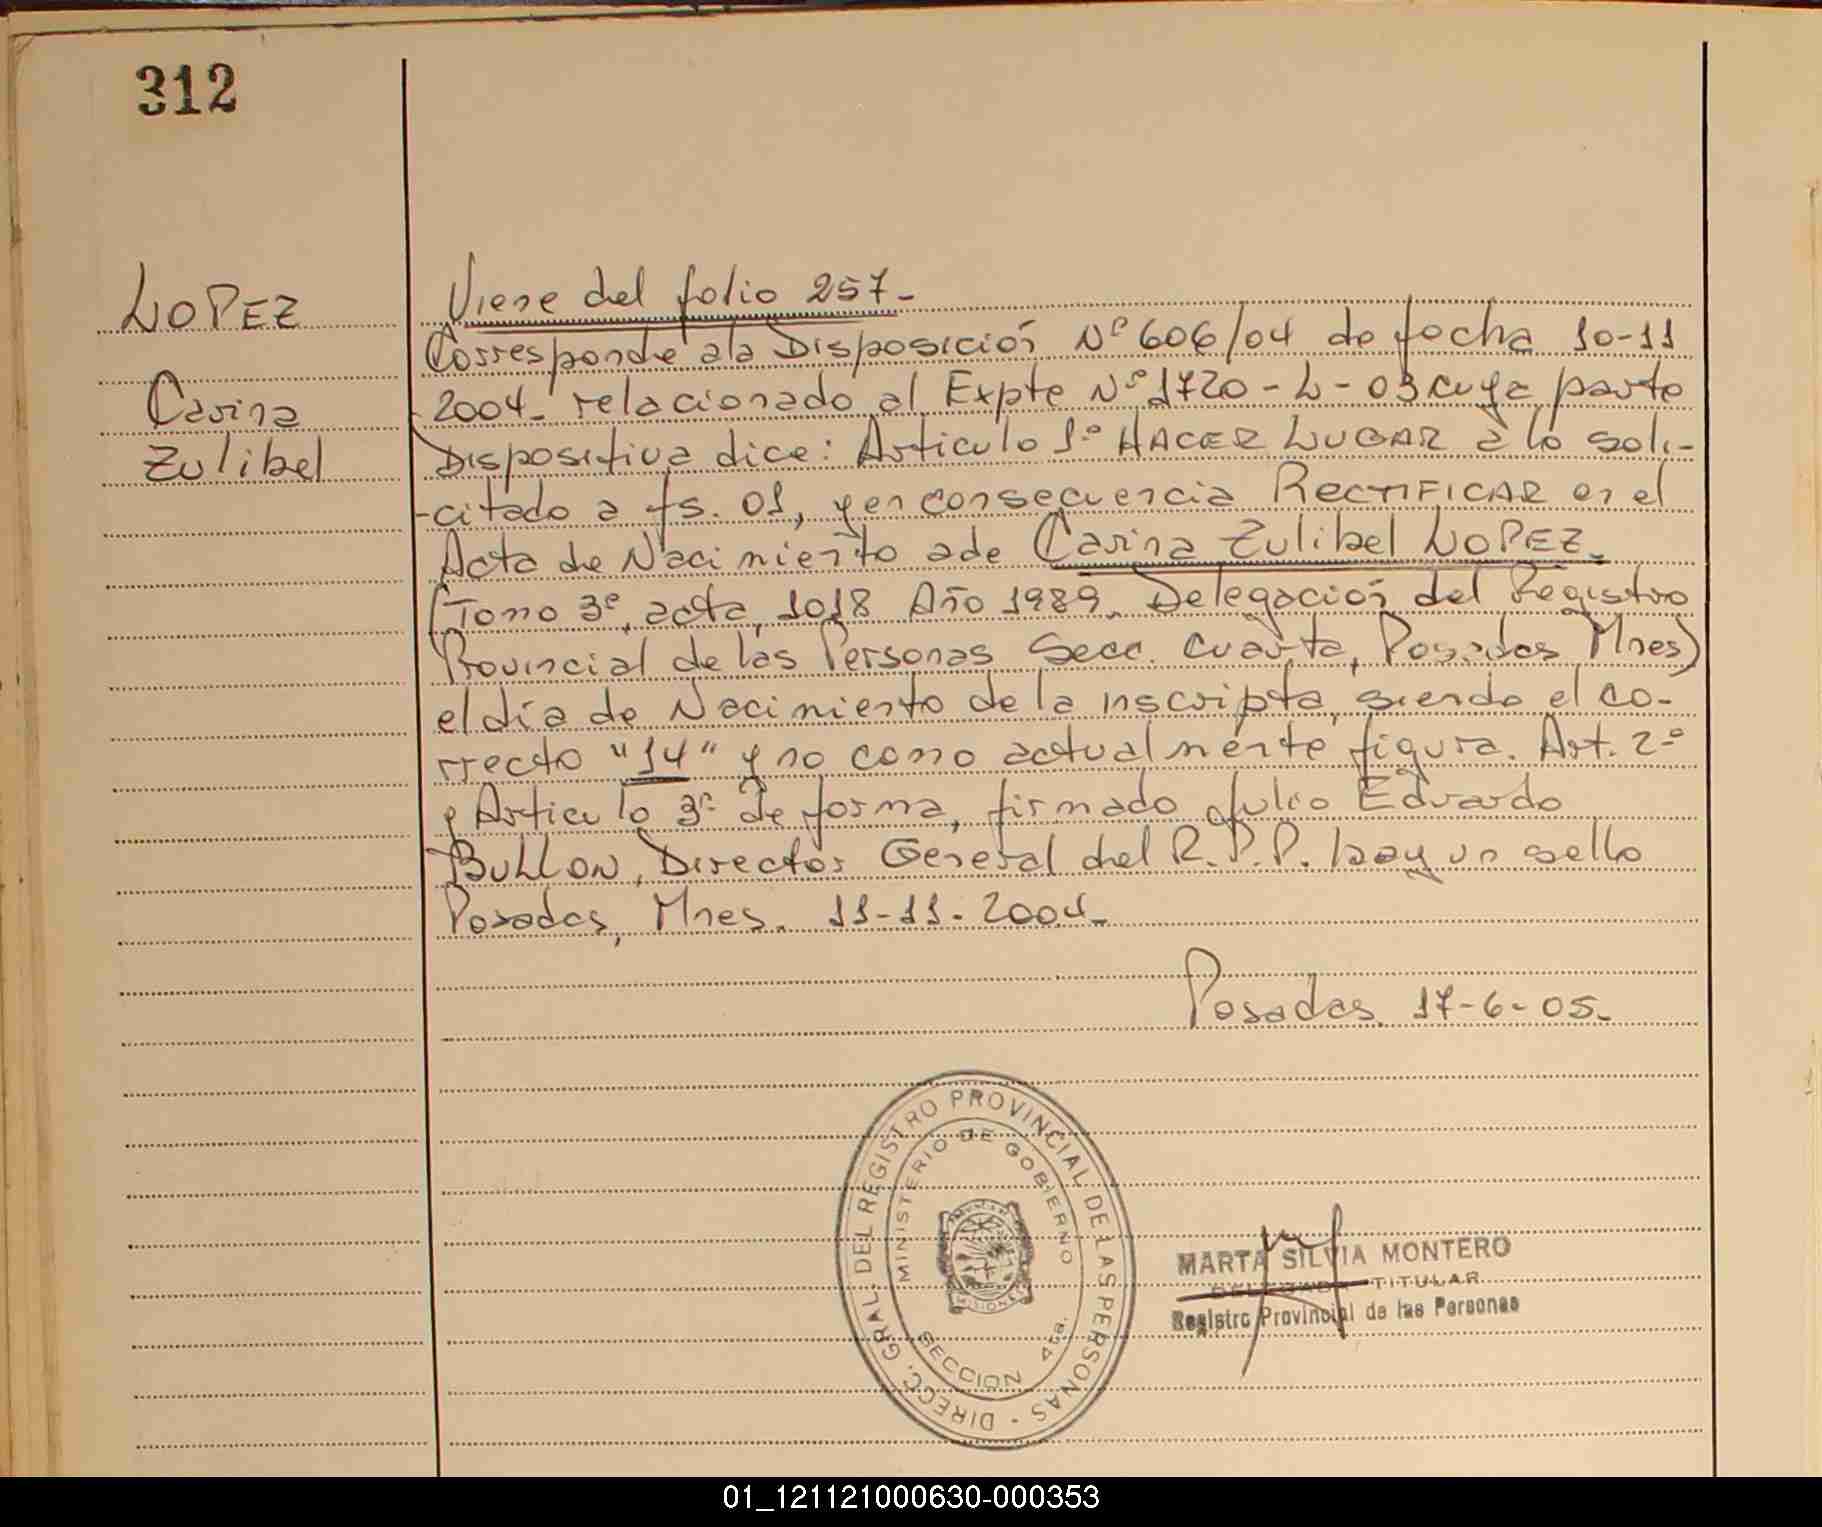 312
LOPEZ
Carina
Zulibel
Viene del folio 257.-
Corresponde a la Disposición Nº 606/04 de fecha 10-11
2004.- relacionado al Expte Nº 1720-L-03 cuya parte
Dispositiva dice: Articulo 1º HACER LUGAR a lo soli-
-citado a fs. 01, y en consecuencia RECTIFICAR en el
Acta de Nacimiento ade Carina Zulibel LOPEZ.-
(Tomo 3º, acta, 1018 Año 1989. Delegación del Registro
Provincial de las Personas Secc. Cuarta, Posadas Mnes)
el día de Nacimiento de la inscripta, siendo el co-
rrecto "14" y no como actualmente figura. Art. 2º
y Articulo 3º de forma, firmado Julio Eduardo
BULLON, Director General del R.P.P. hay un sello
Posadas, Mnes. 11-11-2004.-
Posadas 17-6-05.-
DIRECC. GRAL. DEL REGISTRO PROVINCIAL DE LAS PERSONAS -
MINISTERIO DE GOBIERNO
MISIONES
SECCION 4ta.
MARTA SILVIA MONTERO
TITULAR
Registro Provincial de las Personas
01_121121000630-000353